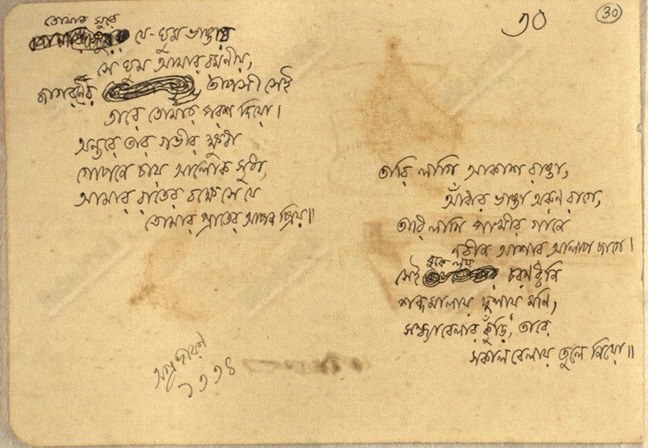 ৩০
৩০
তোমার সুরে
যে-ঘুম ভাঙাও
সে ঘুম আমার রমণীয়,
জাগরণীর তাপসী সেই
তারে তোমার পরশ দিয়ো।
অন্তরে তার গভীর ক্ষুধা
গোপনে চায় আলোক সুধা,
আমার রাতের বক্ষে সে যে
তোমার প্রাতের আপন প্রিয়॥
তারি লাগি আকাশ রাঙা,
আঁধার ভাঙা অরুণ রাগে,
তারি লাগি পাখীর গানে
নবীন আশার আলাপ জাগে।
সেই চরণধ্বনি
দুলায় মণি,
সন্ধ্যাবেলার কুঁড়ি, তারে
সকাল বেলায় তুলে নিয়ো॥
১৩৩৪